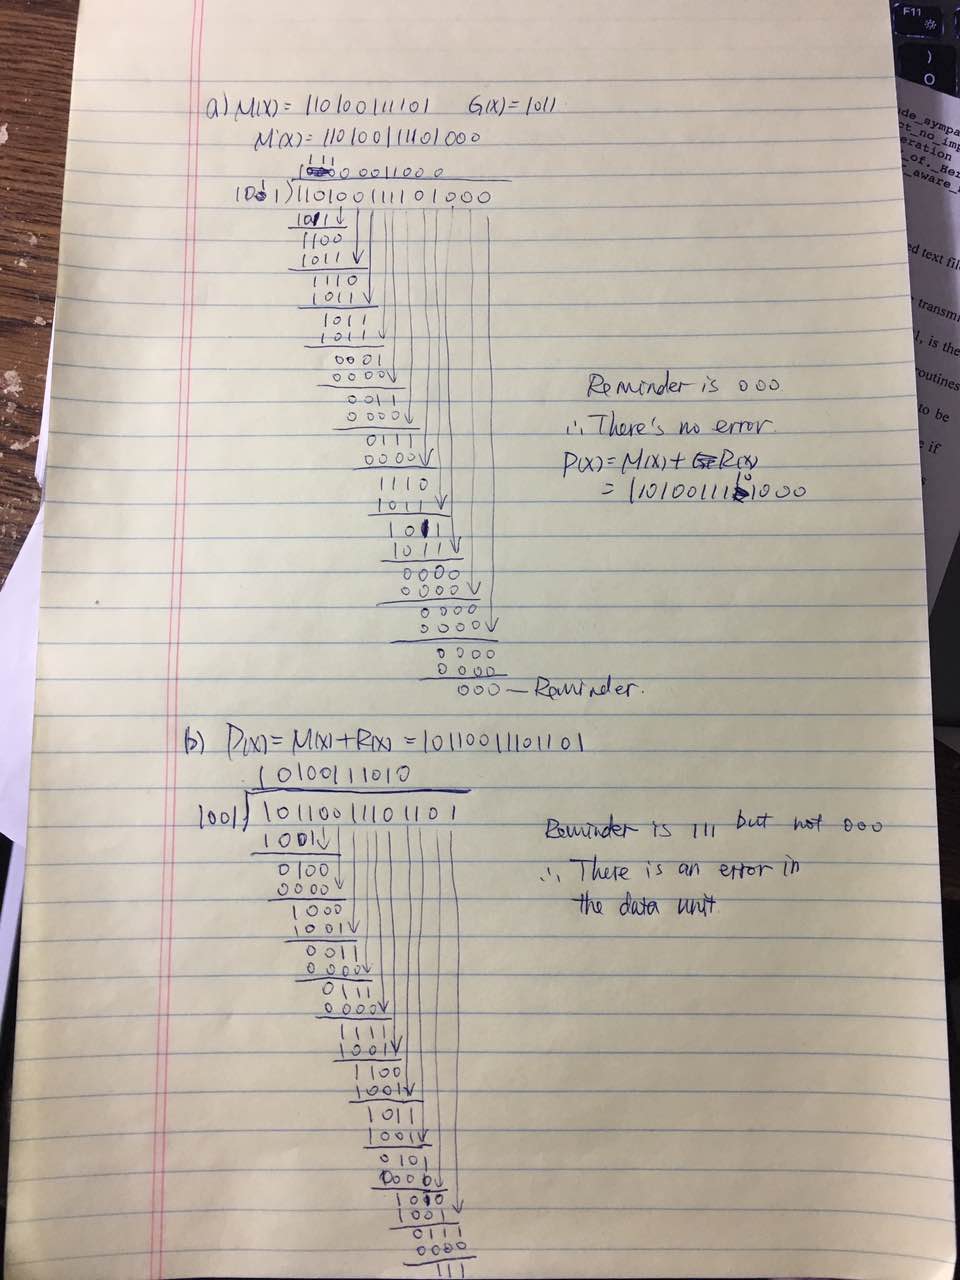 a) M(X) = 110100111101 G(X) = 1011.
M'(X) = 110100111101000
1111 00011000
1011 ) 110100111101000
1011
1100
1011
1110
1011
1011
1011
0001
0000
0011
0000
0111
0000
1110
1011
1011
1011
0000
0000
0000
0000
0000
0000
000 — Reminder.
Reminder is 000
∴ There's no error.
P(X) = M(X) + R(X)
= 110100111101000
(b) P(X) = M(X) + R(X) = 10110011101101
10100111010
1001 ) 10110011101101
1001
0100
0000
1000
1001
0011
0000
0111
0000
1111
1001
1100
1001
1011
1001
0101
0000
1010
1001
0111
0000
111
Reminder is 111 but not 000
∴ There is an error in
the data unit.
F11
)
0
de_sympa
ct_no_imp
eration
_of._Her
_aware_
ed text fil
transmi
l, is the
routines
to be
if